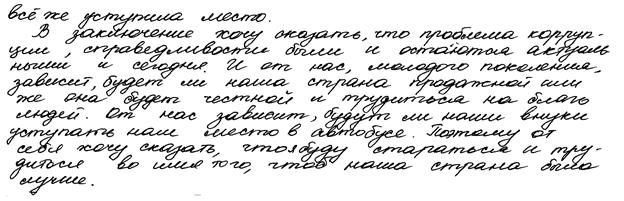 всё же уступила место.
В заключение хочу сказать, что проблема корруп-
ции, справедливости были и остаются актуаль
ными и сегодня. И от нас, молодого поколения,
зависит, будет ли наша страна продажной или
же она будет честной и трудиться на благо
людей. От нас зависит, будут ли наши внуки
уступать нам место в автобусе. Поэтому от
себя хочу сказать, что я буду стараться и тру-
диться во имя того, чтоб наша страна была
лучше.